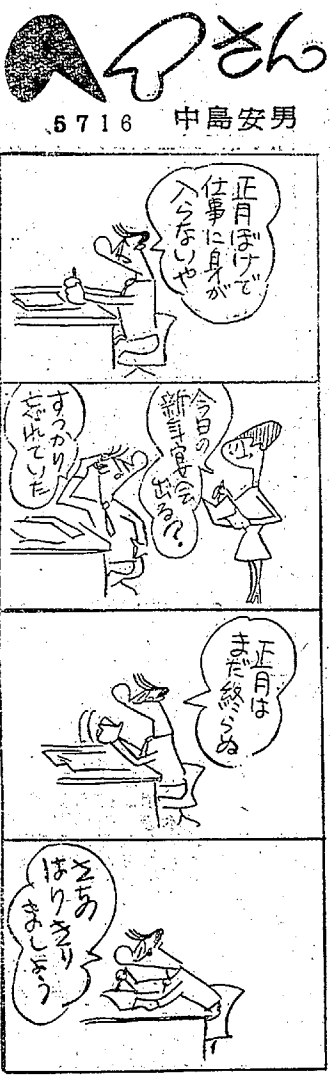 ヘイさん
5716 中島安男
正月ぼけで
仕事に身が
入らないや
今日の
新年宴会
出る?
すっかり
忘れていた
正月は
まだ終らぬ
さあ
はりきり
ましょう